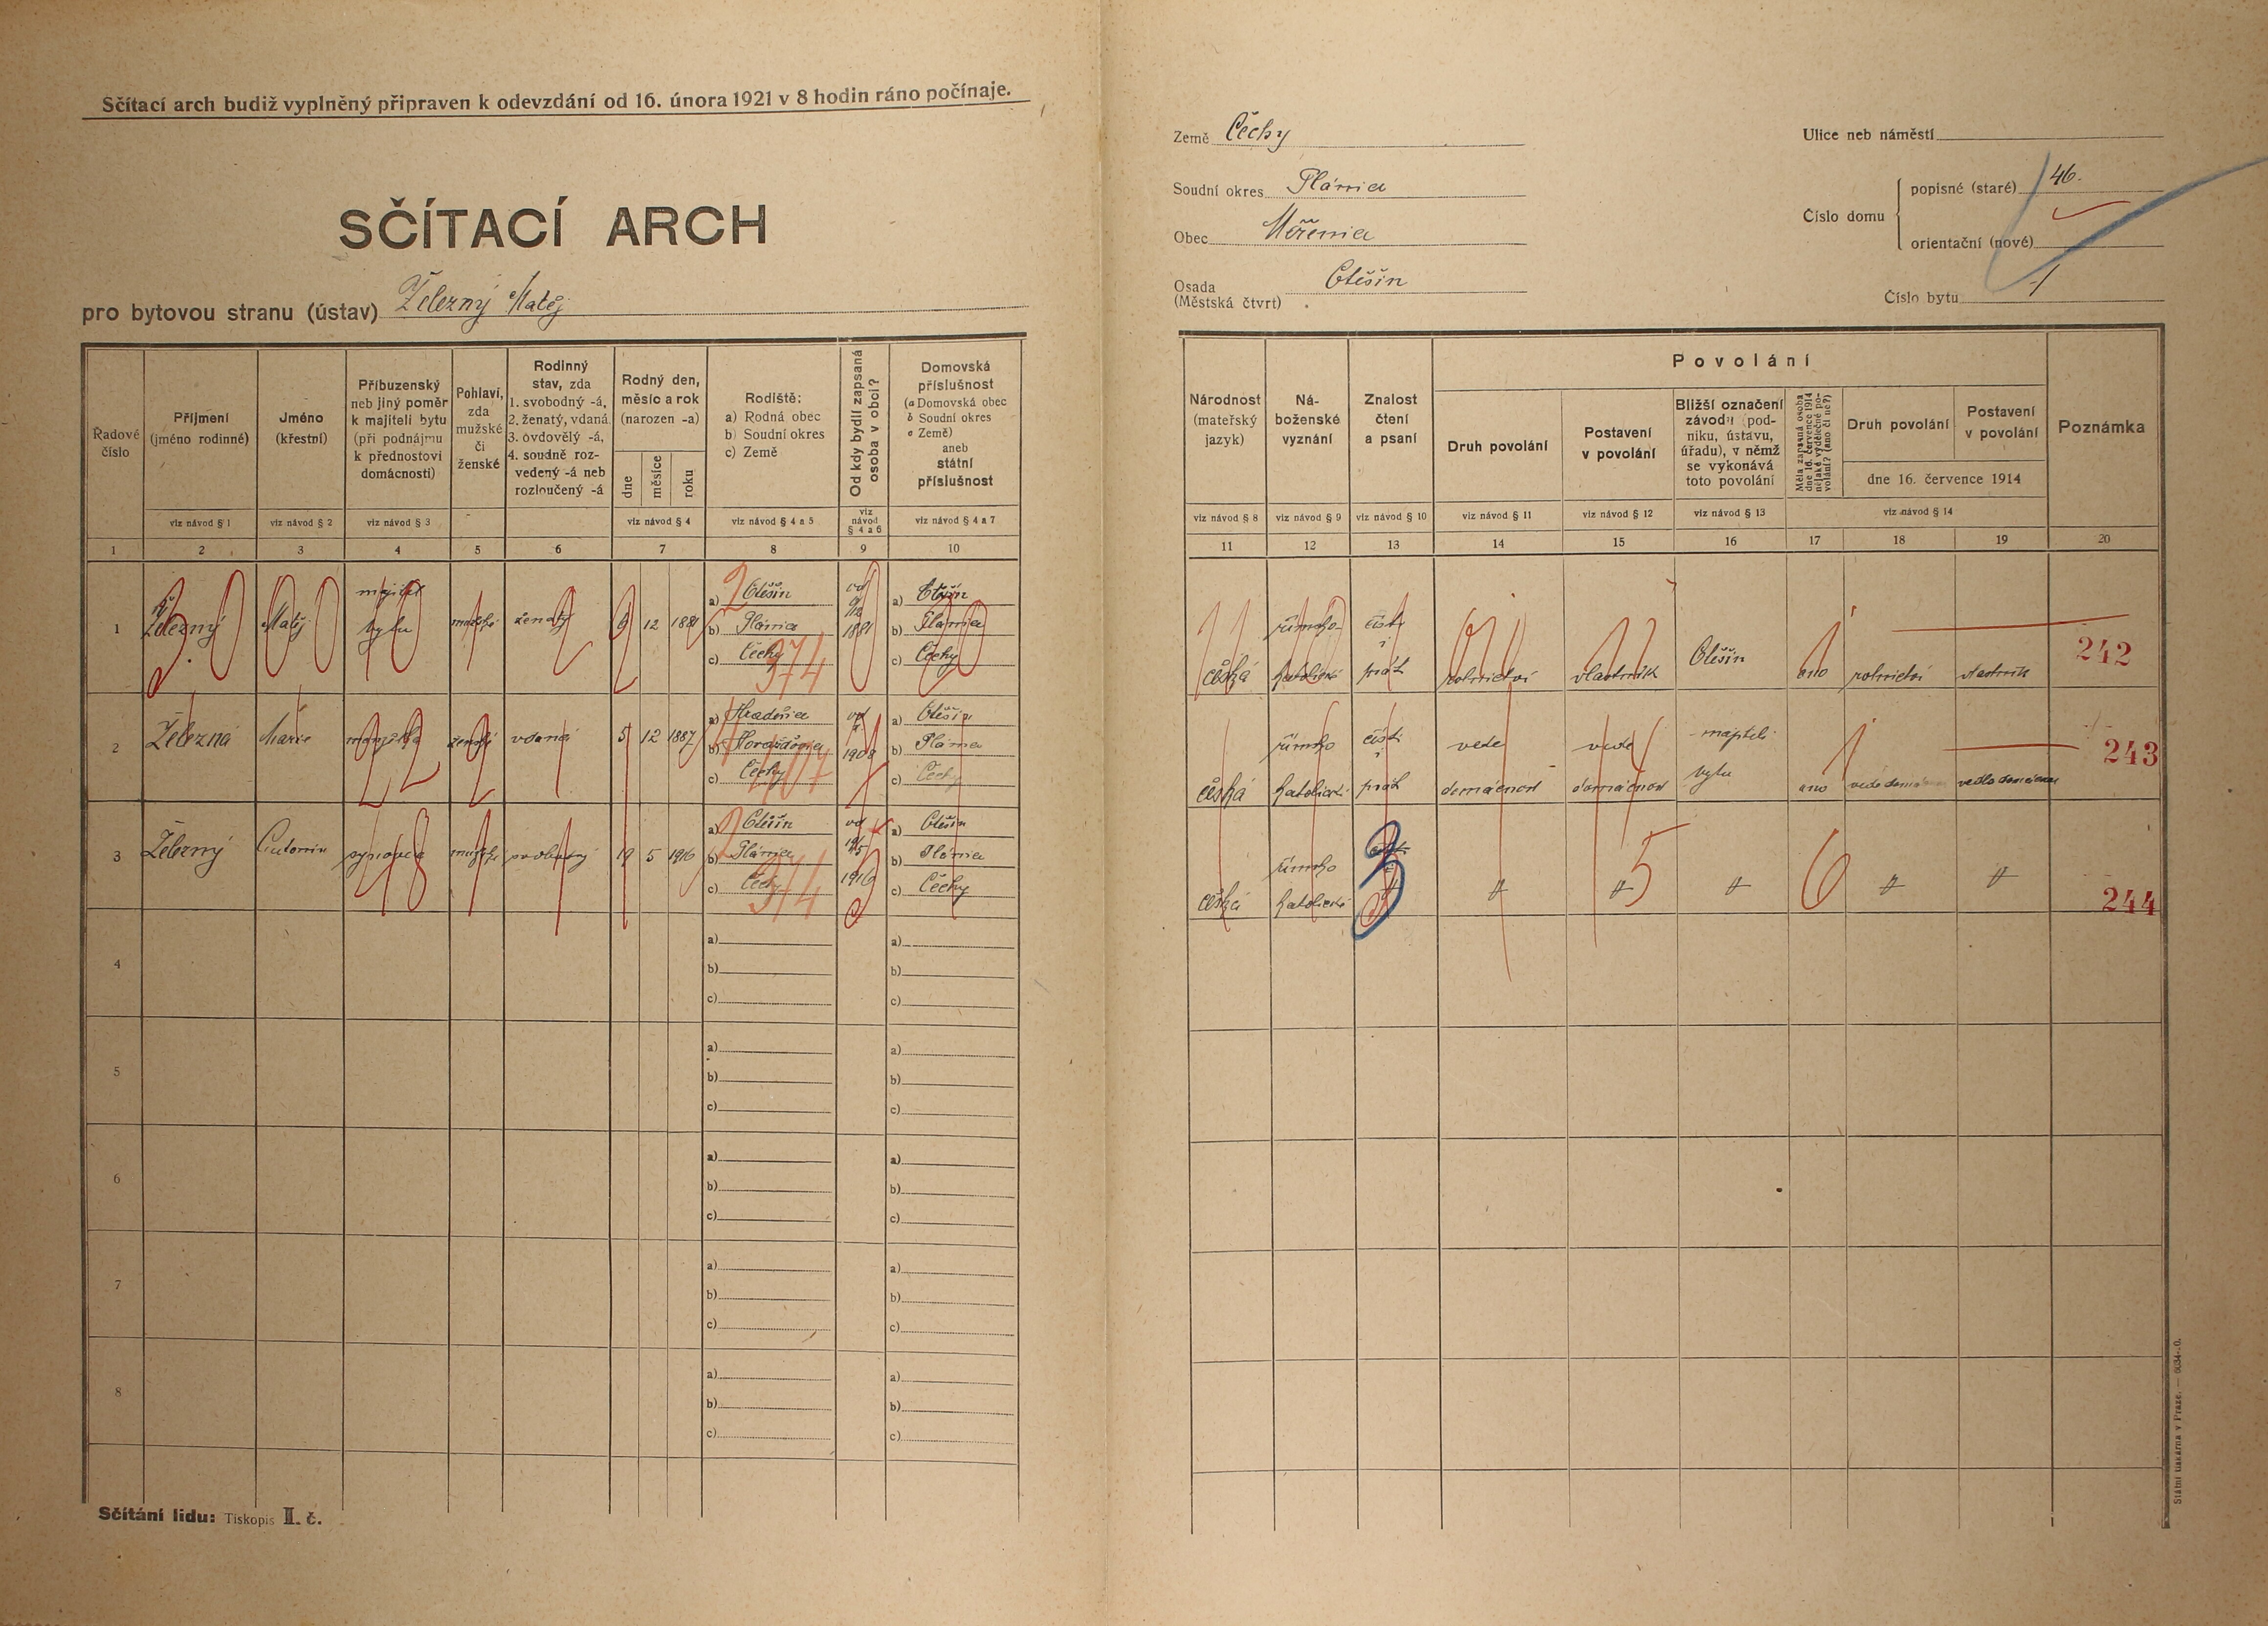 Sčítací arch budiž vyplněný připraven k odevzdání od 16. února 1921 v 8 hodin ráno počínaje.
SČÍTACÍ ARCH
pro bytovou stranu (ústav) Železný Matěj
Země Čechy
Soudní okres Plánice
Obec
Osada Otěšín
(Městská čtvrt)
Ulice neb náměstí
Číslo domu
popisné (staré) 46.
orientační (nové)
Číslo bytu 1
Řadové číslo
Příjmení (jméno rodinné)
Jméno (křestní)
Příbuzenský neb jiný poměr k majiteli bytu (při podnájmu k přednostovi domácnosti)
Pohlaví, zda mužské či ženské
Rodinný stav, zda 1. svobodný -á, 2. ženatý, vdaná 3. ovdovělý -á, 4. soudně rozvedený -á neb rozloučený -á
Rodný den, měsíc a rok (narozen -a)
dne měsíce roku
Rodiště: a) Rodná obec b) Soudní okres c) Země
Od kdy bydlí zapsaná osoba v obci?
Domovská příslušnost (a Domovská obec b Soudní okres c Země) aneb státní příslušnost
viz návod § 1 viz návod § 2 viz návod § 3 viz návod § 4 viz návod § 4 a 5 viz návod § 4 a 6 viz návod § 4 a 7
1 2 3 4 5 6 7 8 9 10
Národnost (mateřský jazyk)
Náboženské vyznání
Znalost čtení a psaní
Povolání
Druh povolání
Postavení v povolání
Bližší označení závodu (podniku, ústavu, úřadu), v němž se vykonává toto povolání
Měla zapsaná osoba dne 16. července 1914 nějaké výdělečné povolání? (ano či ne?)
Druh povolání
Postavení v povolání
dne 16. července 1914
Poznámka
viz návod § 8 viz návod § 9 viz návod § 10 viz návod § 11 viz návod § 12 viz návod § 13 viz návod § 14
11 12 13 14 15 16 17 18 19 20
1 Železný Matěj majitel bytu mužské ženatý 12 1881 a) Otěšín b) Plánice c) Čechy od 1881 a) Otěšín b) Plánice c) Čechy
česká římsko-katolické čísti i psáti rolnictví vlastník Otěšín ano rolnictví vlastník 242
374
2 Železná Marie manželka ženské vdaná 5 12 1887 a) b) c) Čechy od 1908 a) Otěšín b) Plánice c) Čechy
česká římsko katolické čísti i psáti vede domácnost vede domácnost majiteli bytu ano vede vedla 243
3 Železný Antonín mužské svobodný 19 5 1916 a) Otěšín b) Plánice c) Čechy od 1916 a) Otěšín b) Plánice c) Čechy
česká římsko katolické 244
374
4 a) b) c) a) b) c)
5 a) b) c) a) b) c)
6 a) b) c) a) b) c)
7 a) b) c) a) b) c)
8 a) b) c) a) b) c)
Sčítání lidu: Tiskopis II. č.
Státní tiskárna v Praze.